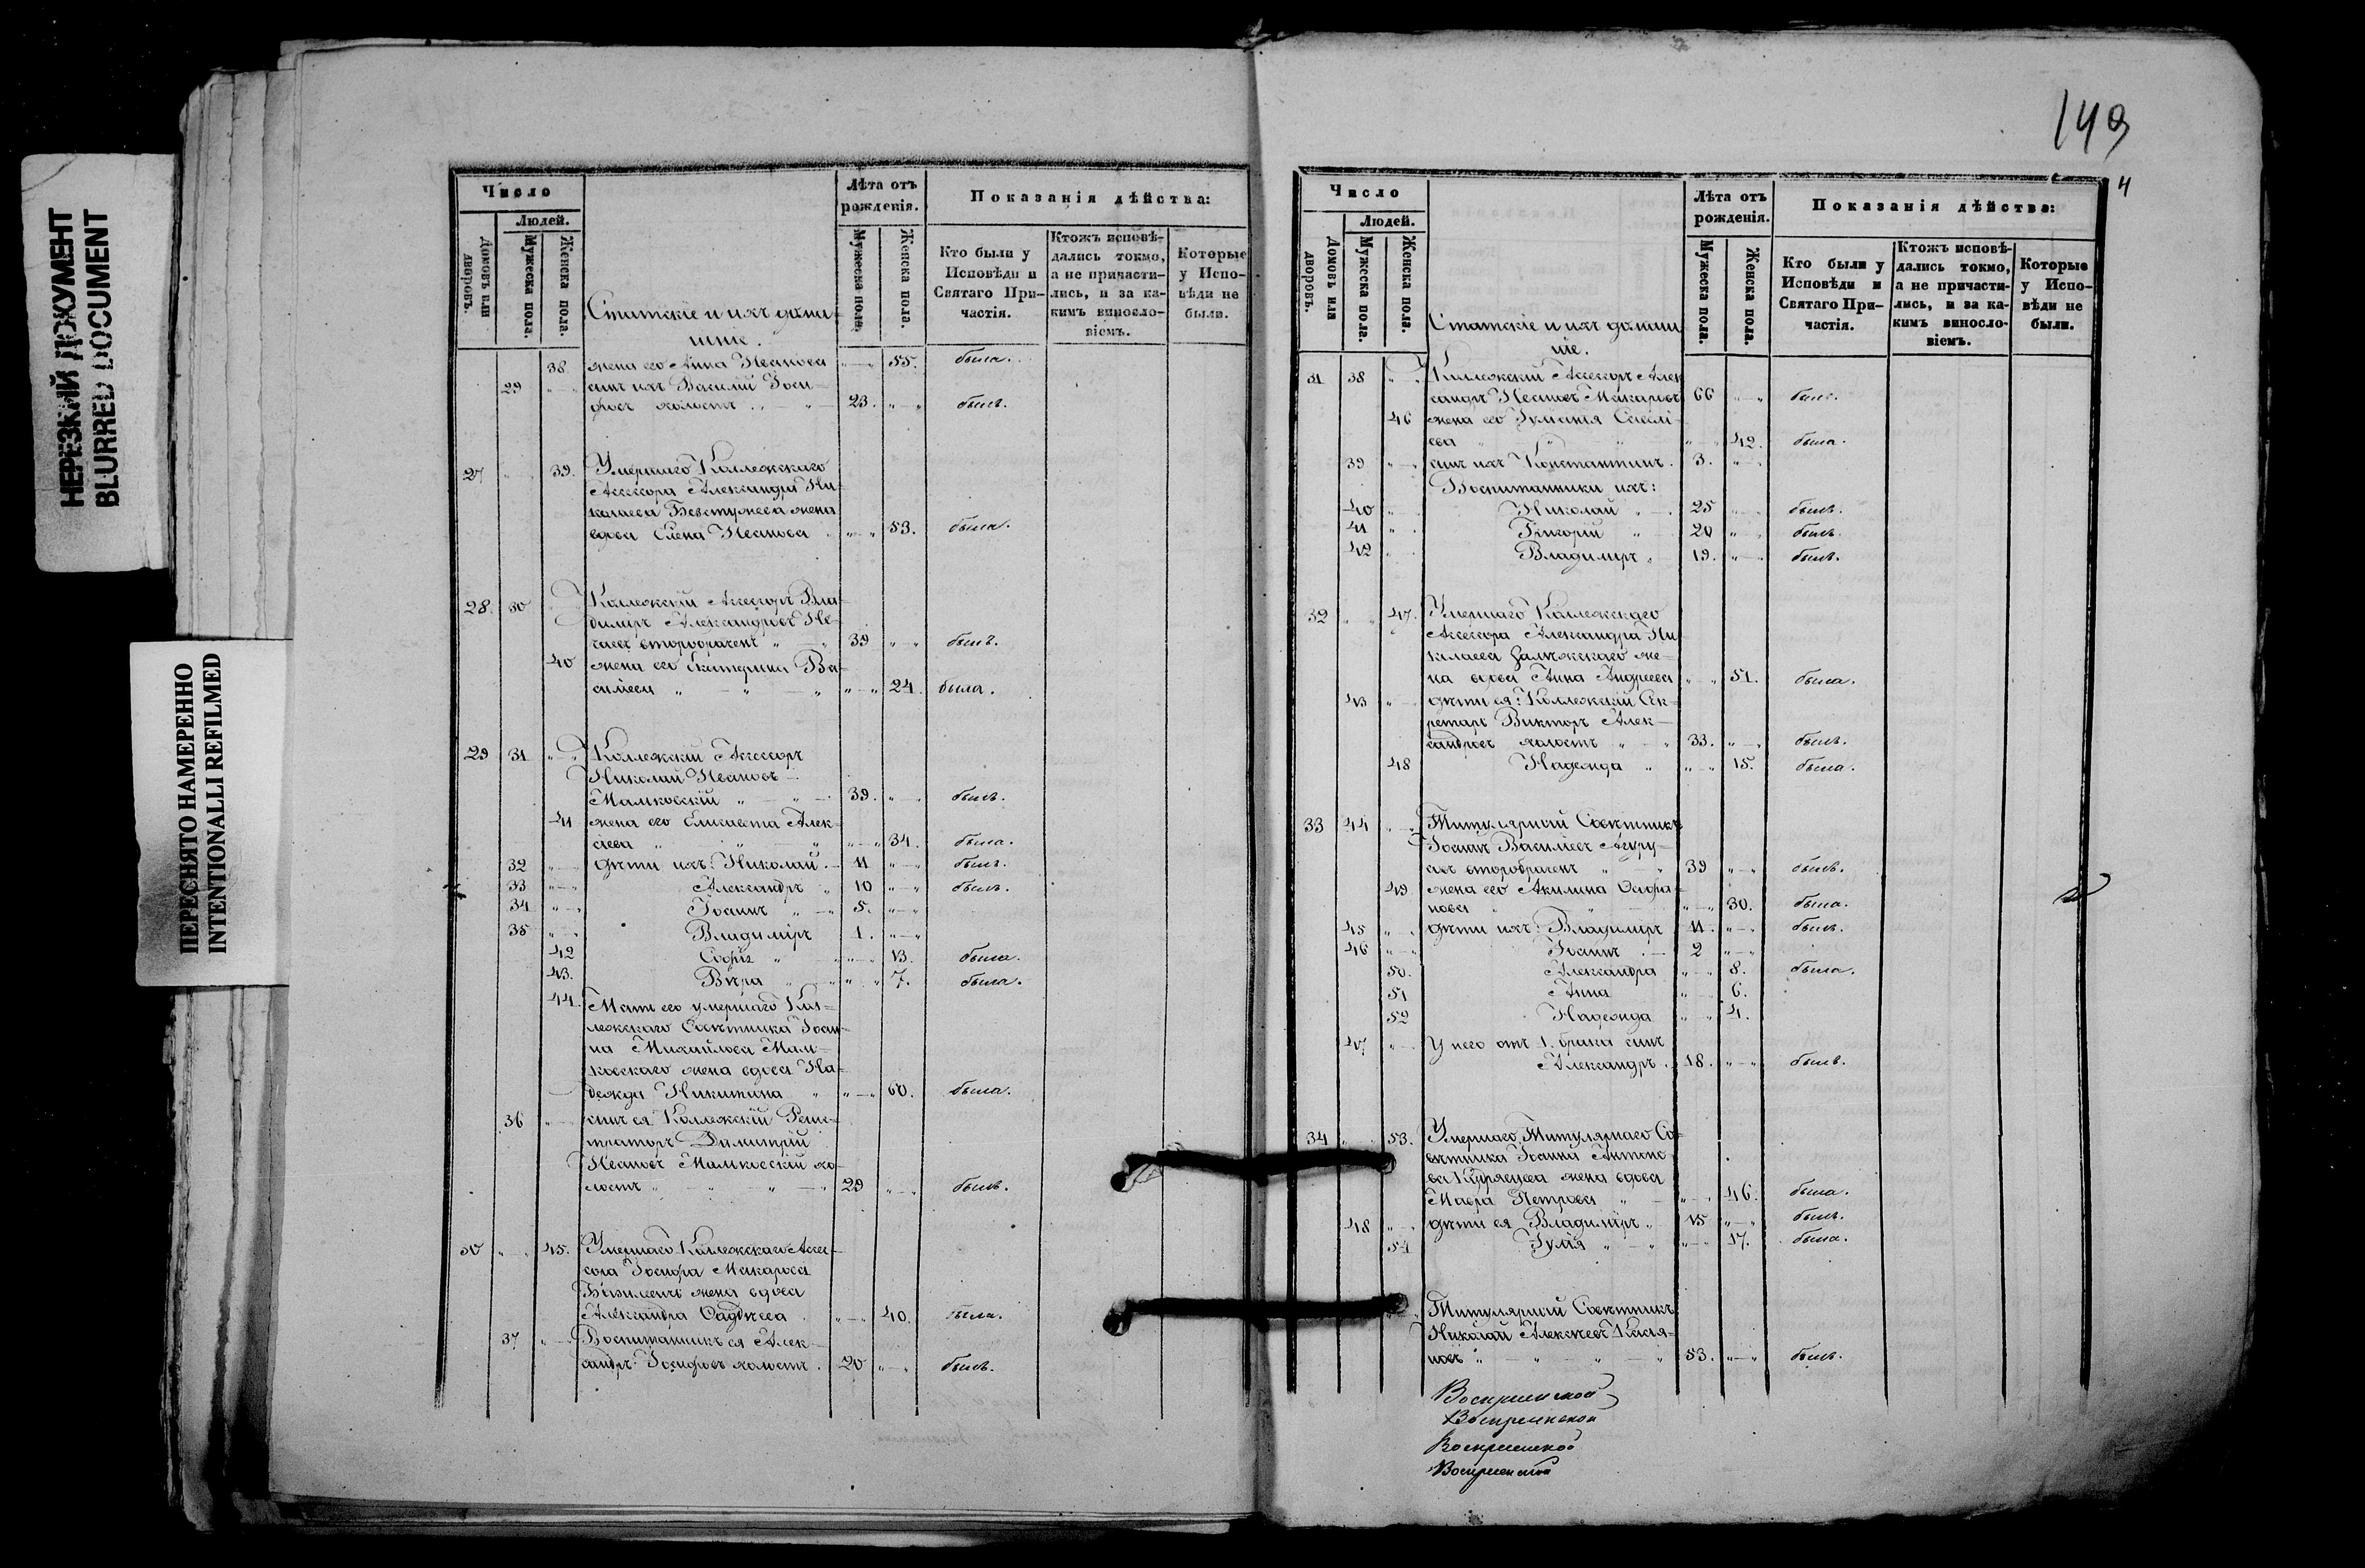 НЕРЕЗКИЙ ДОКУМЕНТ
BLURRED DOCUMENT
ПЕРЕСНЯТО НАМЕРЕННО
INTENTIONALLI REFILMED
Число
Людей.
Домовъ или дворовъ.
Мужеска пола.
Женска пола.
Лѣта отъ рожденія.
Мужеска пола.
Женска пола.
Показанія дѣйства:
Кто были у Исповѣди и Святаго При-частія.
Ктожъ исповѣ-дались токмо, а не причасти-лись, и за ка-кимъ винословіемъ.
Которые у Испо-вѣди не были.
Статскіе и ихъ домаш
ніе.
38 жена его Анна Иванова 55. была.
29 сынъ ихъ Василій Іоси-
фовъ холостъ 23. былъ.
27 39. Умершаго Коллежскаго
Ассесора Александра Ни-
колаева жена
вдова Елена Иванова 53. была.
28. 30 Коллежскій Ассесоръ Вла-
диміръ Александровъ Не-
чаевъ второбраченъ 39 былъ.
40 жена его Екатерина Ва-
сильева 24. была.
29 31 Коллежскій Ассесоръ
Николай Ивановъ
Малковскій 39. былъ.
41 жена его Елисавета Алек-
сѣева 34. была.
32 дѣти ихъ: Николай 11 былъ.
33 Александръ 10 былъ.
34 Іоаннъ 5.
35 Владиміръ 1.
42 Софія 13. была.
43. Вѣра 7. была.
44. Мать его умершаго Кол-
лежскаго Совѣтника Іоан-
на Михайлова Мал-
ковскаго жена вдова На-
дежда Никитина 60. была.
36 сынъ ея Коллежскій Реги-
страторъ Димитрій
Ивановъ Малковскій хо-
лостъ 29 былъ.
30 45. Умершаго Коллежскаго Ассес-
сора Іосифа Макарова
жена вдова
Александра Фаддѣева 40. была.
37 Воспитанникъ ея Алек-
сандръ Іосифовъ холостъ 20 былъ.
149
4
Число
Людей.
Домовъ или дворовъ.
Мужеска пола.
Женска пола.
Лѣта отъ рожденія.
Мужеска пола.
Женска пола.
Показанія дѣйства:
Кто были у Исповѣди и Святаго При-частія.
Ктожъ исповѣ-дались токмо, а не причасти-лись, и за ка-кимъ винословіемъ.
Которые у Испо-вѣди не были.
Статскіе и ихъ домаш
ніе.
31 38 Коллежскій Ассесоръ Алек
сандръ Ивановъ Макаровъ 66 былъ.
46 жена его Іуліанія Савель-
ева 42. была.
39 сынъ ихъ Константинъ 3.
Воспитанники ихъ:
40 Николай 25 былъ.
41 Григорій 20 былъ.
42 Владиміръ 19. былъ.
32 47. Умершаго Коллежскаго
Ассесора Александра Ни
колаева жe-
на вдова Анна Андреева 51. была.
43 дѣти ея: Коллежскій Сек-
ретарь Викторъ Алек-
сандровъ холостъ 33. былъ.
48 Надежда 15. была.
33 44 Титулярный Совѣтникъ
Іоаннъ Васильевъ
второбраченъ 39 былъ.
49 жена его Акилина
30. была.
45 дѣти ихъ: Владиміръ 11. былъ.
46 Іоаннъ 2
50. Александра 8. была.
51 Анна 6.
52 Надежда 4.
47 У него отъ 1. брака сынъ
Александръ 18. былъ.
34 53. Умершаго Титулярнаго Со-
вѣтника Іоанна Антоно-
ва Кудрявцева жена вдова
Мавра Петрова 46. была.
48 дѣти ея Владиміръ 15 былъ.
54 Іулія 17. была.
Титулярный Совѣтникъ
Николай Алексѣевъ Касья-
новъ 53. былъ.
Воскресенской
Воскресенской
Воскресенской
Воскресенской